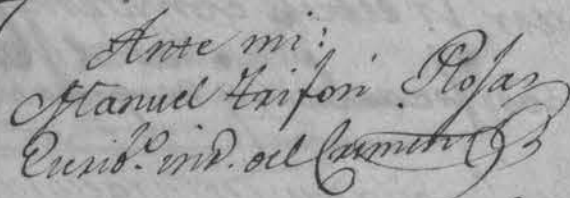 Ante mi:
Manuel Trifon Rosas
Escrib.º int.º del Crimen